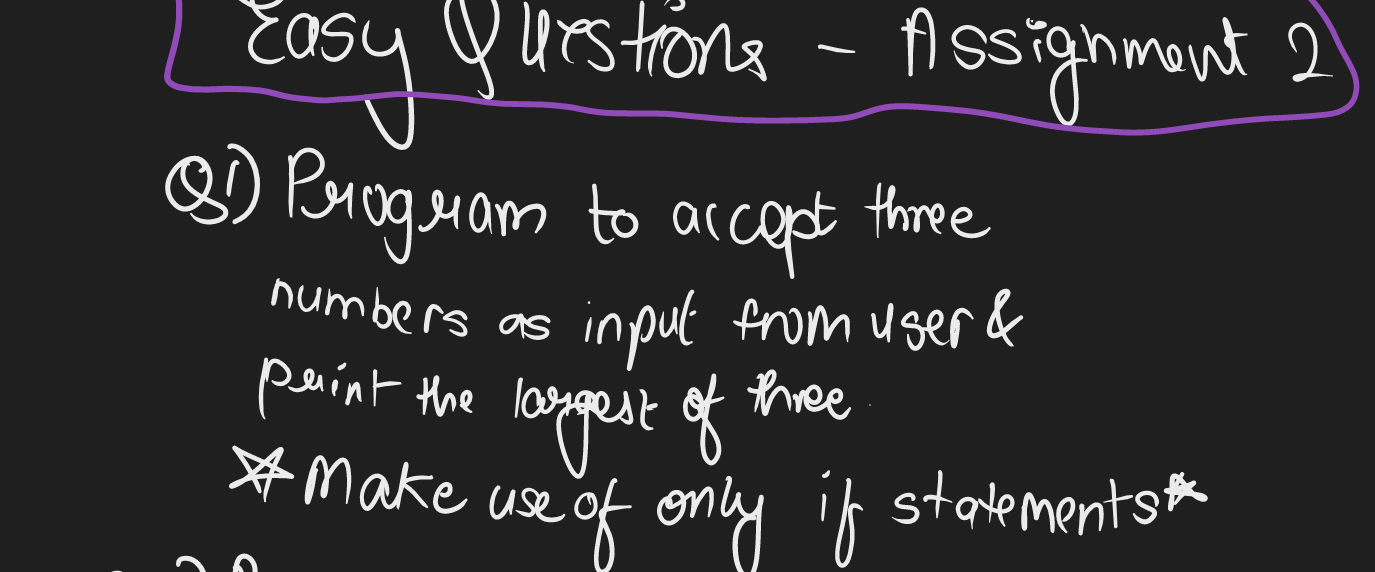 Easy Questions - Assignment 2
Q1) Program to accept three
numbers as input from user &
print the largest of three
☆ Make use of only if statements ☆